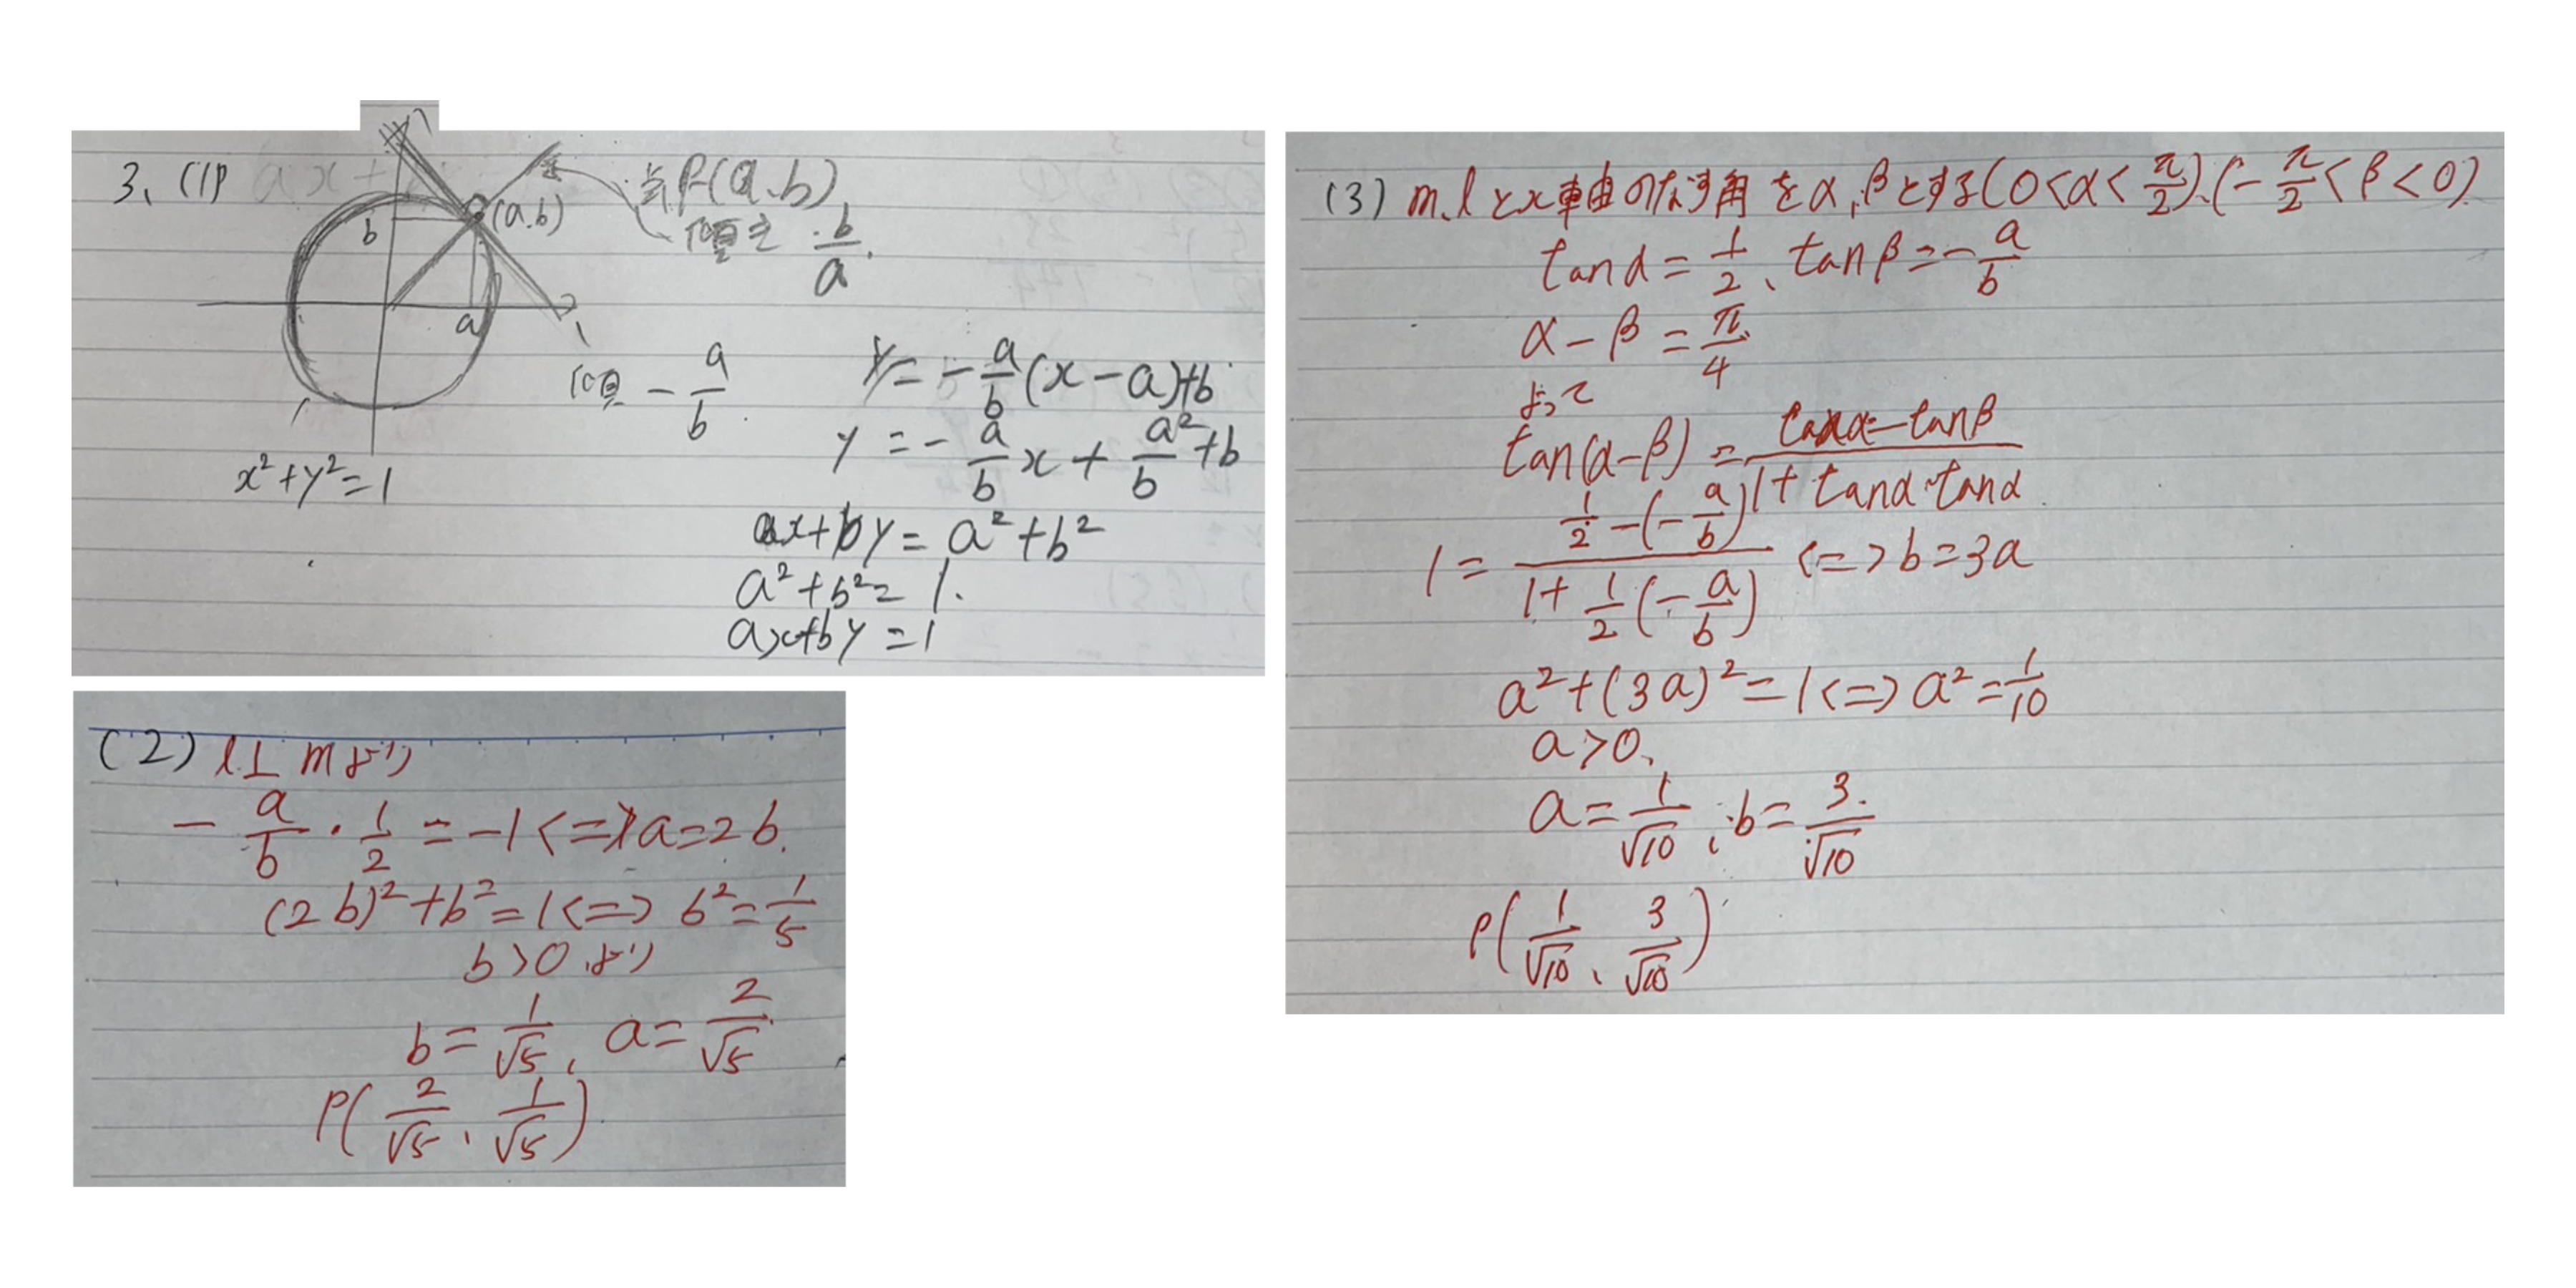 3、(1)
点P(a,b)
(a,b)
傾き b/a
b
a
傾 -a/b
x²+y²=1
y=-a/b(x-a)+b
y=-a/b x+a²/b+b
ax+by=a²+b²
a²+b²=1.
ax+by=1
(2) l⊥mより
-a/b・1/2=-1<=>a=2b.
(2b)²+b²=1<=> b²=1/5
b>0より
b=1/√5, a=2/√5
P(2/√5、1/√5)
(3) m,lとx軸のなす角をα,βとする(0<α<π/2)、(-π/2<β<0)
tanα=1/2、tanβ=-a/b
α-β=π/4
よって
tan(α-β)=tanα-tanβ/1+tanα・tanα
1=1/2-(-a/b)/1+1/2(-a/b) <=>b=3a
a²+(3a)²=1<=>a²=1/10
a>0、
a=1/√10, b=3/√10
P(1/√10、3/√10)